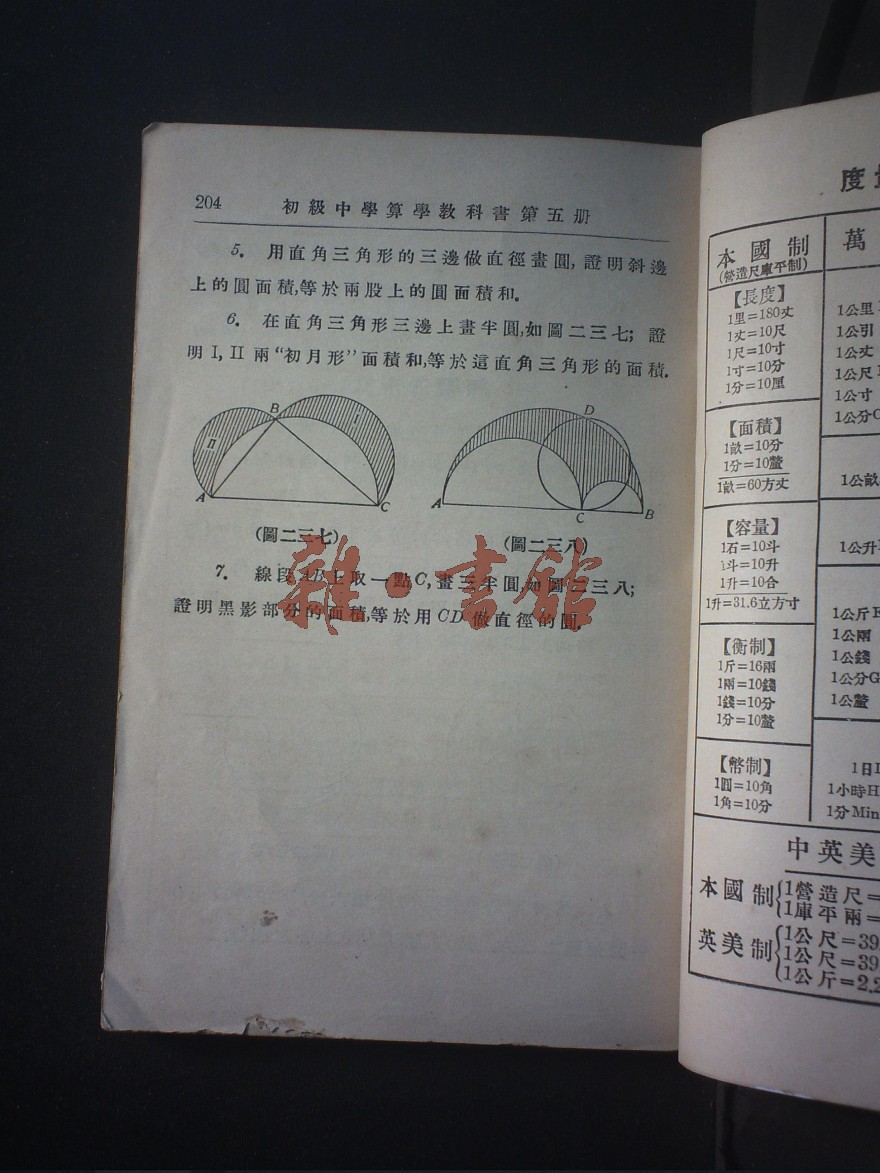 204 初級中學算學教科書第五册
5. 用直角三角形的三邊做直徑畫圓,證明斜邊
上的圓面積,等於兩股上的圓面積和.
6. 在直角三角形三邊上畫半圓,如圖二三七; 證
明 I, II 兩“初月形”面積和,等於這直角三角形的面積.
B
I
II
A
C
(圖二三七)
D
A
C
B
(圖二三八)
7. 線段AB上取一點C,畫三半圓,如圖二三八;
證明黑影部分的面積,等於用CD做直徑的圓.
雜·書館
度
本國制
(營造尺庫平制)
【長度】
1里=180丈
1丈=10尺
1尺=10寸
1寸=10分
1分=10厘
【面積】
1畝=10分
1分=10釐
1畝=60方丈
【容量】
1石=10斗
1斗=10升
1升=10合
1升=31.6立方寸
【衡制】
1斤=16兩
1兩=10錢
1錢=10分
1分=10釐
【幣制】
1圓=10角
1角=10分
萬
1公里
1公引
1公丈
1公尺
1公寸
1公分
1公畝
1公升
1公斤
1公兩
1公錢
1公分G
1公釐
1日
1小時H
1分Min
中英美
本國制
1營造尺=
1庫平兩=
英美制
1公尺=39
1公尺=39.
1公斤=2.2